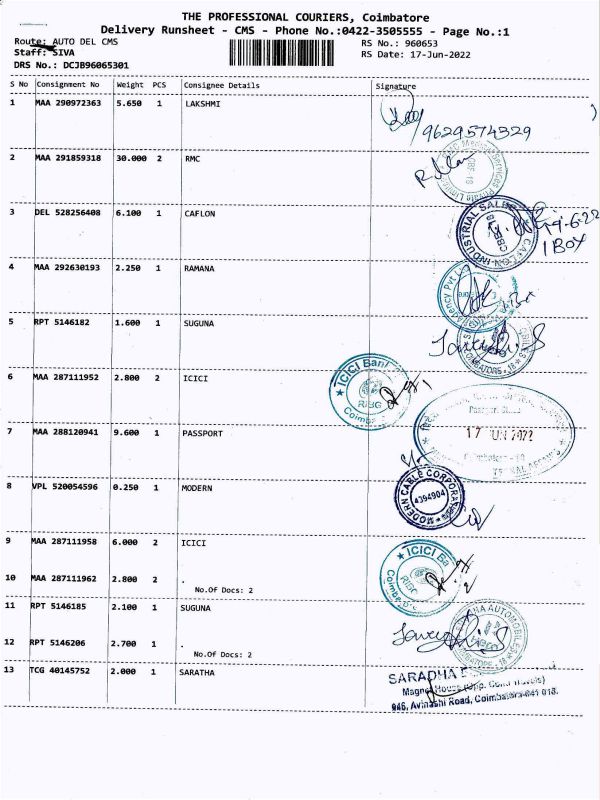 THE PROFESSIONAL COURIERS, Coimbatore
Delivery Runsheet - CMS - Phone No.:0422-3505555 - Page No.:1
Route: AUTO DEL CMS RS No.: 960653
Staff: SIVA RS Date: 17-Jun-2022
DRS No.: DCJB96065301
S No Consignment No Weight PCS Consignee Details Signature
1 MAA 290972363 5.650 1 LAKSHMI
9629574329
2 MAA 291859318 30.000 2 RMC
3 DEL 528256408 6.100 1 CAFLON
INDUSTRIAL SALES
1 BOX
4 MAA 292630193 2.250 1 RAMANA
5 RPT 5146182 1.600 1 SUGUNA
6 MAA 287111952 2.800 2 ICICI
ICICI Bank
RIBG
7 MAA 288120941 9.600 1 PASSPORT
17 JUN 2022
8 VPL 520054596 0.250 1 MODERN
MODERN CABLE CORPORATION
4394904
9 MAA 287111958 6.000 2 ICICI
ICICI Ba
RIBG
10 MAA 287111962 2.800 2 .
No.Of Docs: 2
11 RPT 5146185 2.100 1 SUGUNA
12 RPT 5146206 2.700 1 .
No.Of Docs: 2
13 TCG 40145752 2.000 1 SARATHA
SARADHA
046, Avinashi Road, Coimbatore-641 018.